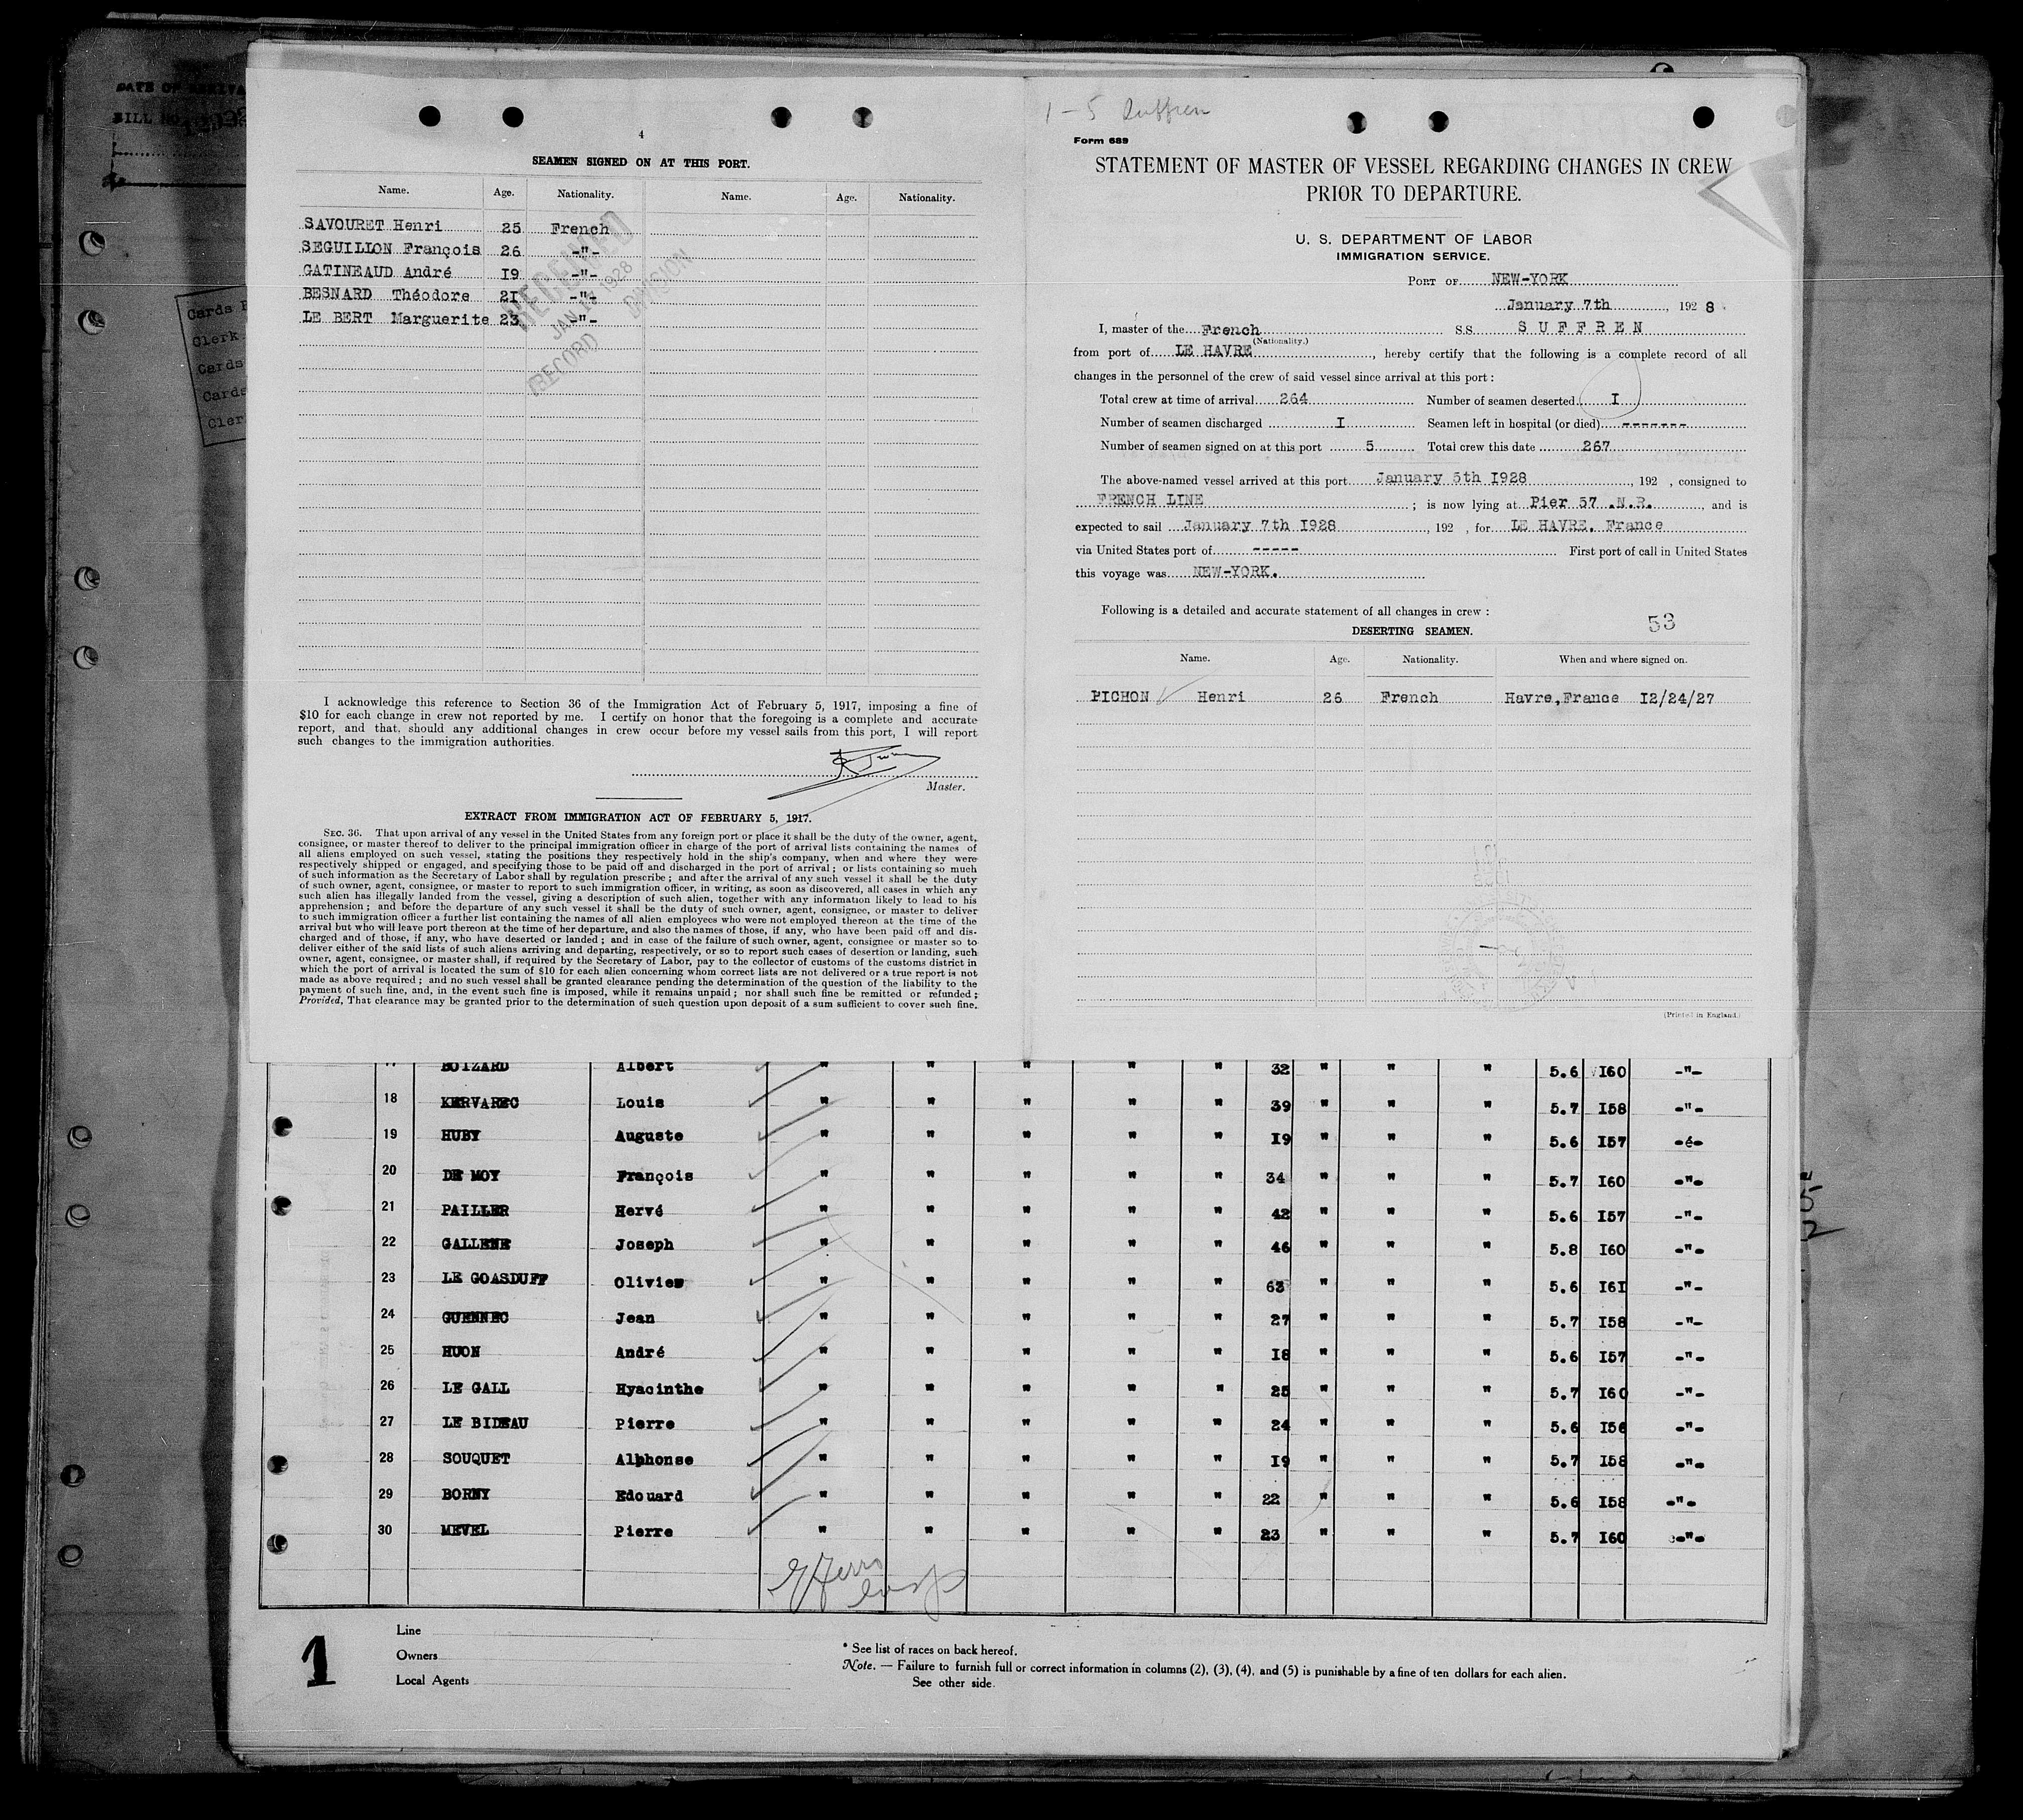 DATE OF ARRIVA
BILL NO.
Cards
Clerk
Cards
Cards
Cler
4
SEAMEN SIGNED ON AT THIS PORT.
Name. Age. Nationality. Name. Age. Nationality.
SAVOURET Henri 25 French
SEGUILLON François 26 -"-
GATINEAUD André I9 -"-
BESNARD Théodore 2I -"-
LE BERT Marguerite 23 -"-
RECEIVED
JAN 17 1928
RECORD DIVISION
I acknowledge this reference to Section 36 of the Immigration Act of February 5, 1917, imposing a fine of
$10 for each change in crew not reported by me. I certify on honor that the foregoing is a complete and accurate
report, and that, should any additional changes in crew occur before my vessel sails from this port, I will report
such changes to the immigration authorities.
Master.
EXTRACT FROM IMMIGRATION ACT OF FEBRUARY 5, 1917.
SEC. 36. That upon arrival of any vessel in the United States from any foreign port or place it shall be the duty of the owner, agent,
consignee, or master thereof to deliver to the principal immigration officer in charge of the port of arrival lists containing the names of
all aliens employed on such vessel, stating the positions they respectively hold in the ship's company, when and where they were
respectively shipped or engaged, and specifying those to be paid off and discharged in the port of arrival; or lists containing so much
of such information as the Secretary of Labor shall by regulation prescribe; and after the arrival of any such vessel it shall be the duty
of such owner, agent, consignee, or master to report to such immigration officer, in writing, as soon as discovered, all cases in which any
such alien has illegally landed from the vessel, giving a description of such alien, together with any information likely to lead to his
apprehension; and before the departure of any such vessel it shall be the duty of such owner, agent, consignee, or master to deliver
to such immigration officer a further list containing the names of all alien employees who were not employed thereon at the time of the
arrival but who will leave port thereon at the time of her departure, and also the names of those, if any, who have been paid off and dis-
charged and of those, if any, who have deserted or landed; and in case of the failure of such owner, agent, consignee or master so to
deliver either of the said lists of such aliens arriving and departing, respectively, or so to report such cases of desertion or landing, such
owner, agent, consignee, or master shall, if required by the Secretary of Labor, pay to the collector of customs of the customs district in
which the port of arrival is located the sum of $10 for each alien concerning whom correct lists are not delivered or a true report is not
made as above required; and no such vessel shall be granted clearance pending the determination of the question of the liability to the
payment of such fine, and, in the event such fine is imposed, while it remains unpaid; nor shall such fine be remitted or refunded;
Provided, That clearance may be granted prior to the determination of such question upon deposit of a sum sufficient to cover such fine.
1-5 Suffren
Form 689
STATEMENT OF MASTER OF VESSEL REGARDING CHANGES IN CREW
PRIOR TO DEPARTURE.
U. S. DEPARTMENT OF LABOR
IMMIGRATION SERVICE.
PORT OF NEW-YORK
January 7th, 192 8
I, master of the French S.S. S U F F R E N
(Nationality.)
from port of LE HAVRE, hereby certify that the following is a complete record of all
changes in the personnel of the crew of said vessel since arrival at this port:
Total crew at time of arrival 264 Number of seamen deserted I
Number of seamen discharged I Seamen left in hospital (or died) -------
Number of seamen signed on at this port 5 Total crew this date 267
The above-named vessel arrived at this port January 5th I928, 192 , consigned to
FRENCH LINE; is now lying at Pier 57 .N.R., and is
expected to sail January 7th I928, 192 , for LE HAVRE, France
via United States port of ----- First port of call in United States
this voyage was NEW-YORK.
Following is a detailed and accurate statement of all changes in crew:
53
DESERTING SEAMEN.
Name. Age. Nationality. When and where signed on.
PICHON Henri 26 French Havre,France I2/24/27
(Printed in England.)
17 BOIZARD Albert " " " " " 32 " " " 5.6 I60 -"-
18 KERVAREC Louis " " " " " 39 " " " 5.7 I58 -"-
19 HUBY Auguste " " " " " I9 " " " 5.6 I57 -é-
20 DE MOY François " " " " " 34 " " " 5.7 I60 -"-
21 PAILLER Hervé " " " " " 42 " " " 5.6 I57 -"-
22 GALLENE Joseph " " " " " 46 " " " 5.8 I60 -"-
23 LE GOASDUFF Olivier " " " " " 63 " " " 5.6 I6I -"-
24 GUENNEC Jean " " " " " 27 " " " 5.7 I58 -"-
25 HUON André " " " " " I8 " " " 5.6 I57 -"-
26 LE GALL Hyacinthe " " " " " 25 " " " 5.7 I60 -"-
27 LE BIDEAU Pierre " " " " " 24 " " " 5.6 I56 -"-
28 SOUQUET Alphonse " " " " " I9 " " " 5.7 I58 -"-
29 BORNY Edouard " " " " " 22 " " " 5.6 I58 -"-
30 MEVEL Pierre " " " " " 23 " " " 5.7 I60 -"-
1
Line
Owners
Local Agents
* See list of races on back hereof.
Note. — Failure to furnish full or correct information in columns (2), (3), (4), and (5) is punishable by a fine of ten dollars for each alien.
See other side.